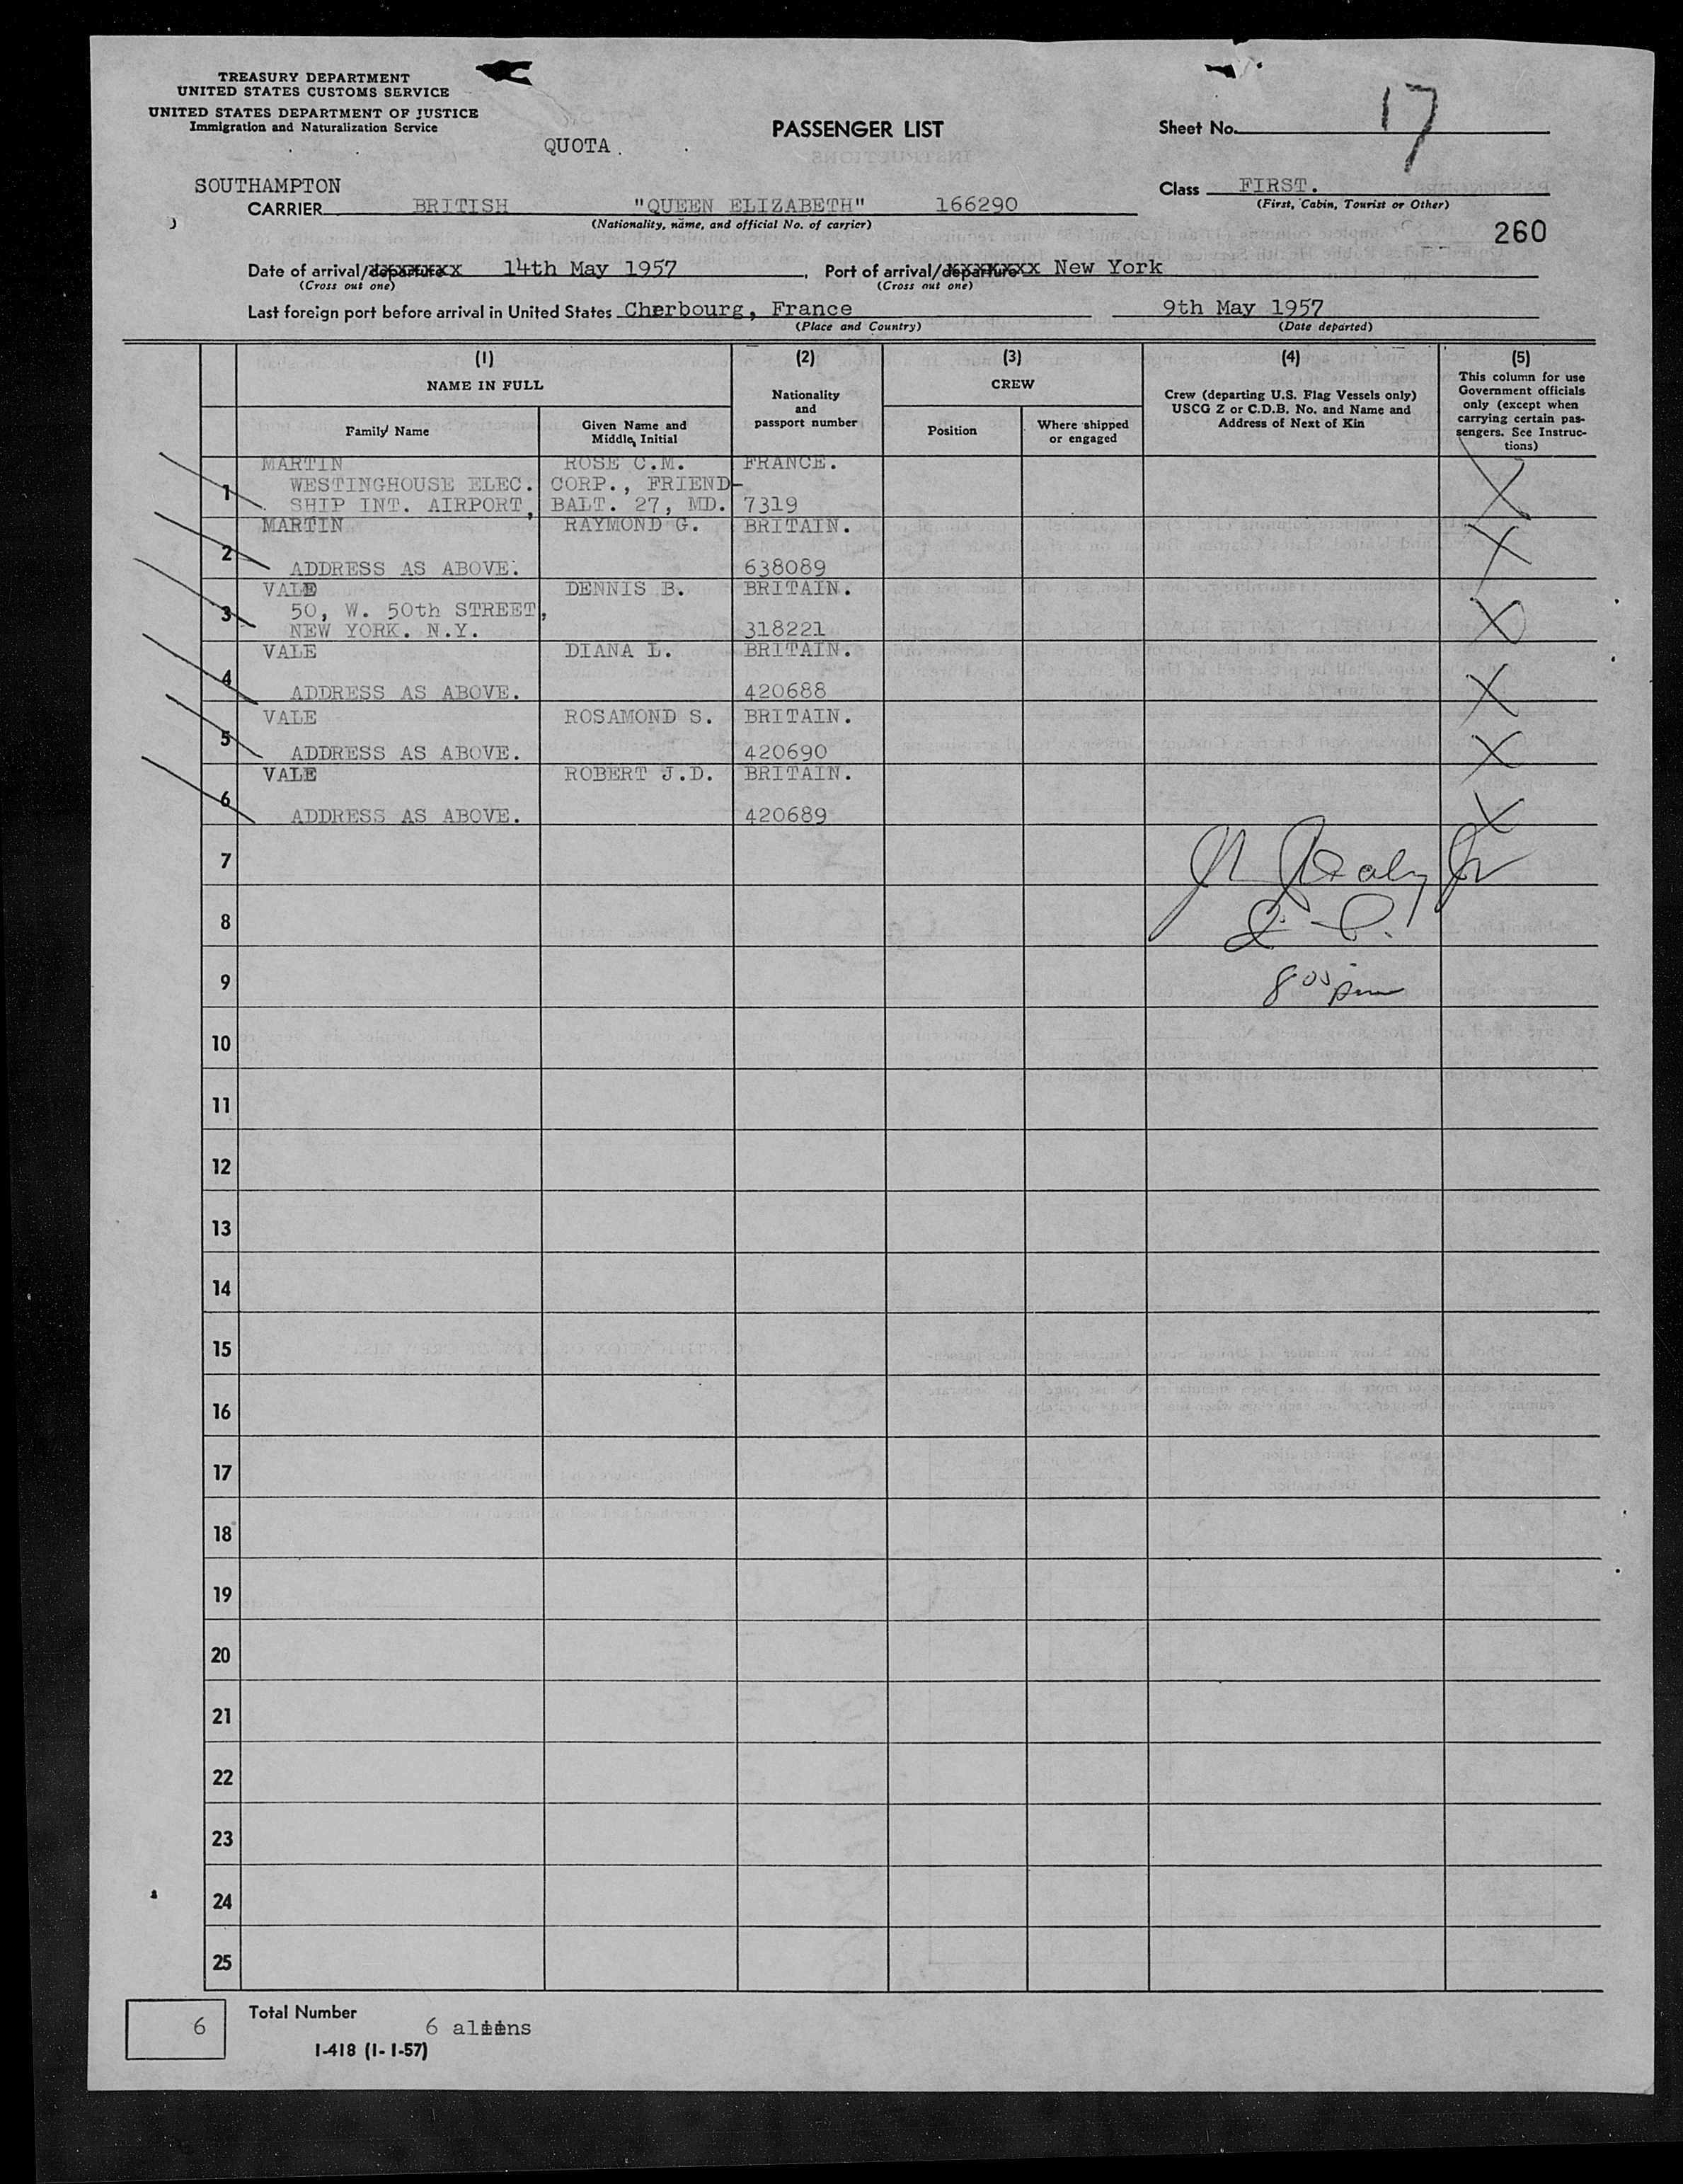 TREASURY DEPARTMENT
UNITED STATES CUSTOMS SERVICE
UNITED STATES DEPARTMENT OF JUSTICE
Immigration and Naturalization Service
QUOTA.
PASSENGER LIST
Sheet No. 17
SOUTHAMPTON
CARRIER BRITISH "QUEEN ELIZABETH" 166290
(Nationality, name, and official No. of carrier)
Class FIRST.
(First, Cabin, Tourist or Other)
260
Date of arrival/departure 14th May 1957, Port of arrival/departure New York
(Cross out one) (Cross out one)
Last foreign port before arrival in United States Cherbourg, France 9th May 1957
(Place and Country) (Date departed)
(1) (2) (3) (4) (5)
NAME IN FULL
Family Name
Given Name and
Middle Initial
Nationality
and
passport number
CREW
Position
Where shipped
or engaged
Crew (departing U.S. Flag Vessels only)
USCG Z or C.D.B. No. and Name and
Address of Next of Kin
This column for use
Government officials
only (except when
carrying certain pas-
sengers. See Instruc-
tions)
MARTIN ROSE C.M. FRANCE.
1 WESTINGHOUSE ELEC. CORP., FRIEND-
SHIP INT. AIRPORT, BALT. 27, MD. 7319
MARTIN RAYMOND G. BRITAIN.
2
ADDRESS AS ABOVE. 638089
VALE DENNIS B. BRITAIN.
3 50, W. 50th STREET,
NEW YORK. N.Y. 318221
VALE DIANA L. BRITAIN.
4
ADDRESS AS ABOVE. 420688
VALE ROSAMOND S. BRITAIN.
5
ADDRESS AS ABOVE. 420690
VALE ROBERT J.D. BRITAIN.
6
ADDRESS AS ABOVE. 420689
7
8
9
8 05 pm
10
11
12
13
14
15
16
17
18
19
20
21
22
23
24
25
6
Total Number
6 aliens
I-418 (1-1-57)